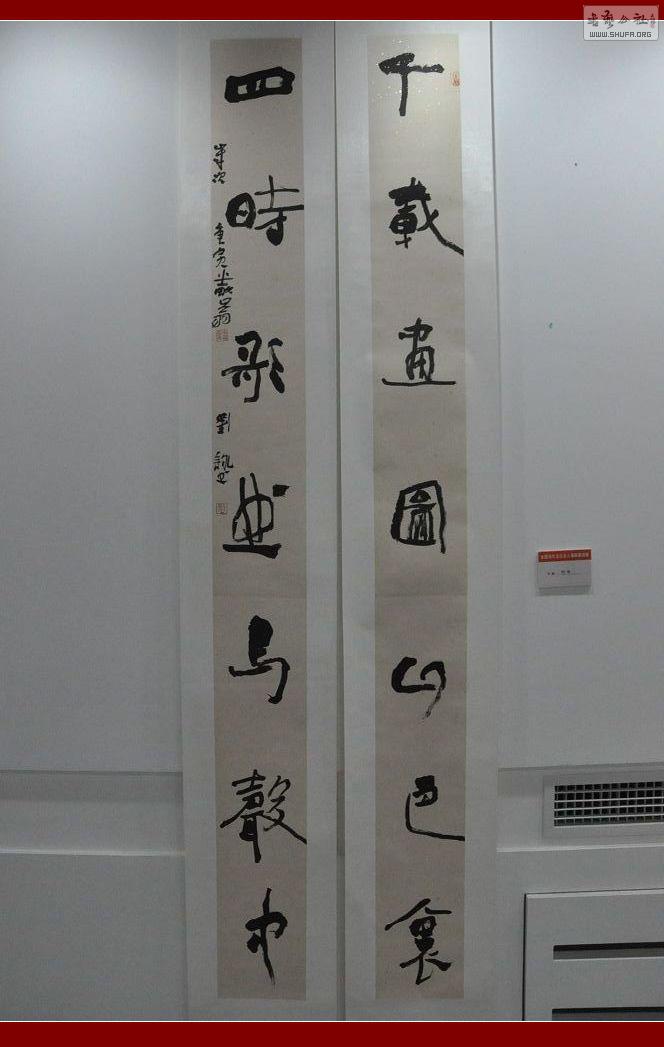 千載畫圖山色裏
四時歌曲鳥聲中
歲次
劉
WWW.SHUFA.ORG